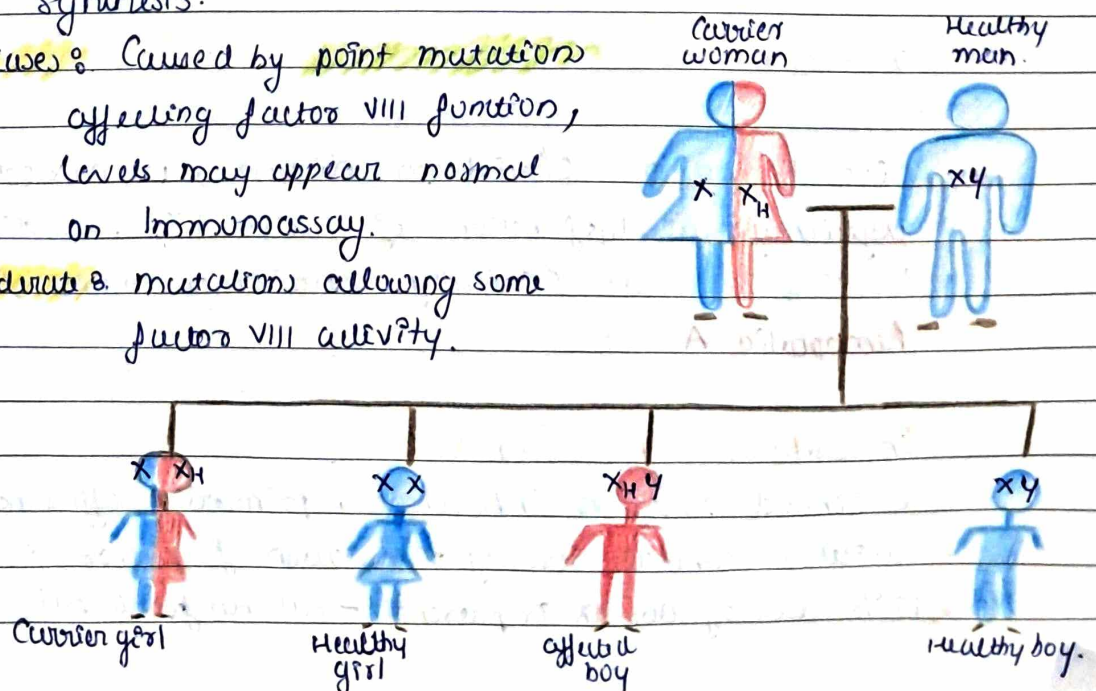 synthesis.
Caused by point mutations
affecting factor VIII function,
levels may appear normal
on Immunoassay.
derate : mutations allowing some
factor VIII activity.
Carrier
woman
Healthy
man.
X XH
XY
X XH
X X
XH Y
XY
Carrier girl
Healthy
girl
affected
boy
Healthy boy.